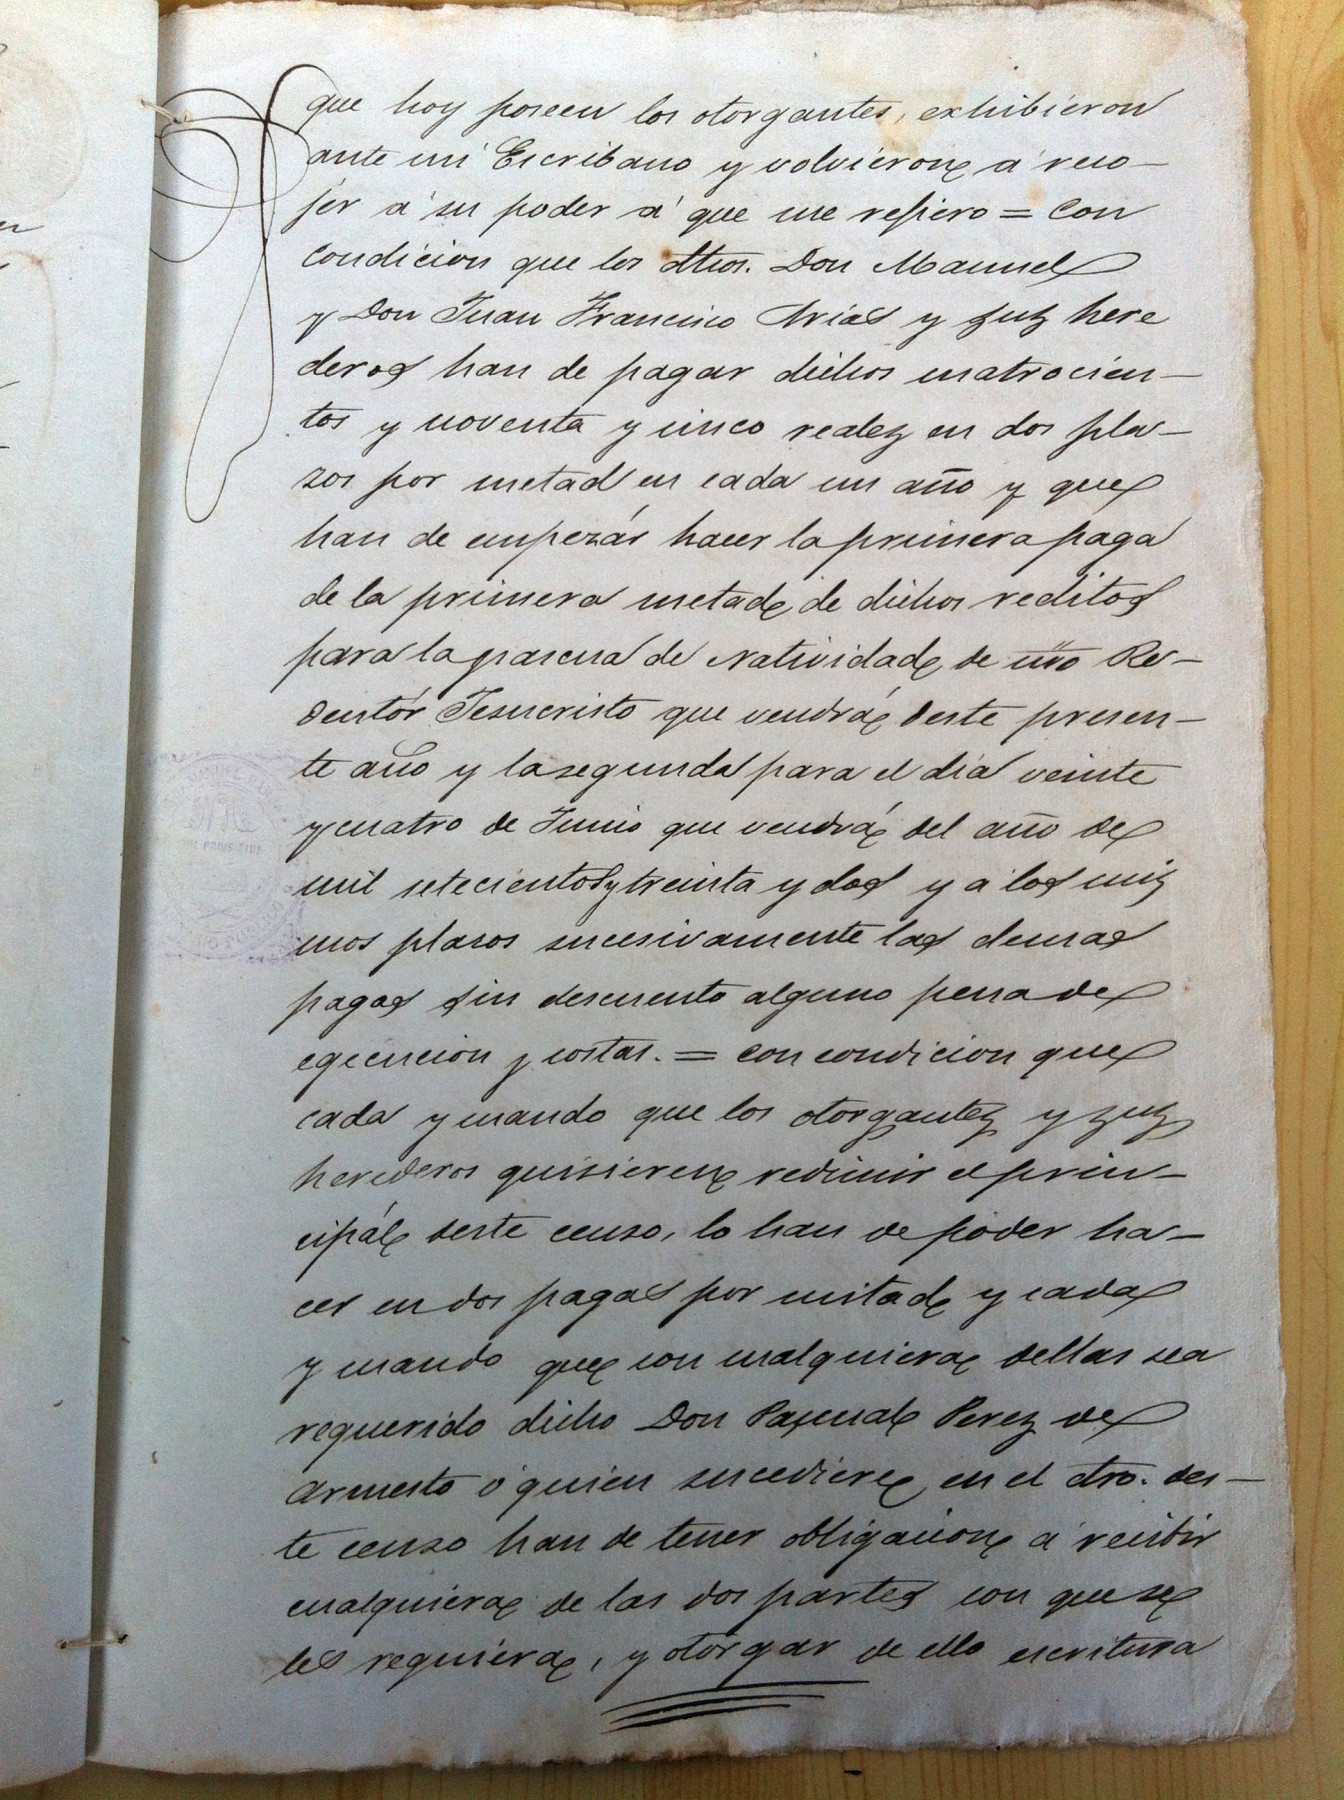 que hoy poseen los otorgantes, exhibieron
ante mi Escribano y volvieron á reco-
jer á su poder á que me refiero = Con
condicion que los dhos. Don Manuel
y Don Juan Francisco Arias y sus here
deros han de pagar dichos cuatrocien-
tos y noventa y cinco reales en dos pla-
zos por metad en cada un año y que
han de empezár hacer la primera paga
de la primera metad de dichos reditos
para la pascua de Natividad de nro Re-
dentór Jesucristo que vendrá deste presen-
te año y la segunda para el dia veinte
y cuatro de Junio que vendrá del año de
mil setecientos y treinta y dos y a los mis
mos plasos sucesivamente las demas
pagas sin descuento alguno pena de
egecucion y costas. = Con condicion que
cada y cuando que los otorgantes y sus
herederos quisieren redimir el prin-
cipál deste censo, lo han de poder ha-
cer en dos pagas por mitad y cada
y cuando que con cualquiera dellas sea
requerido dicho Don Pascual Perez de
Armesto ó quien sucediere en el dro. des-
te censo han de tener obligacion á recibir
cualquiera de las dos partes con que se
les requiera, y otorgar de ello escritura